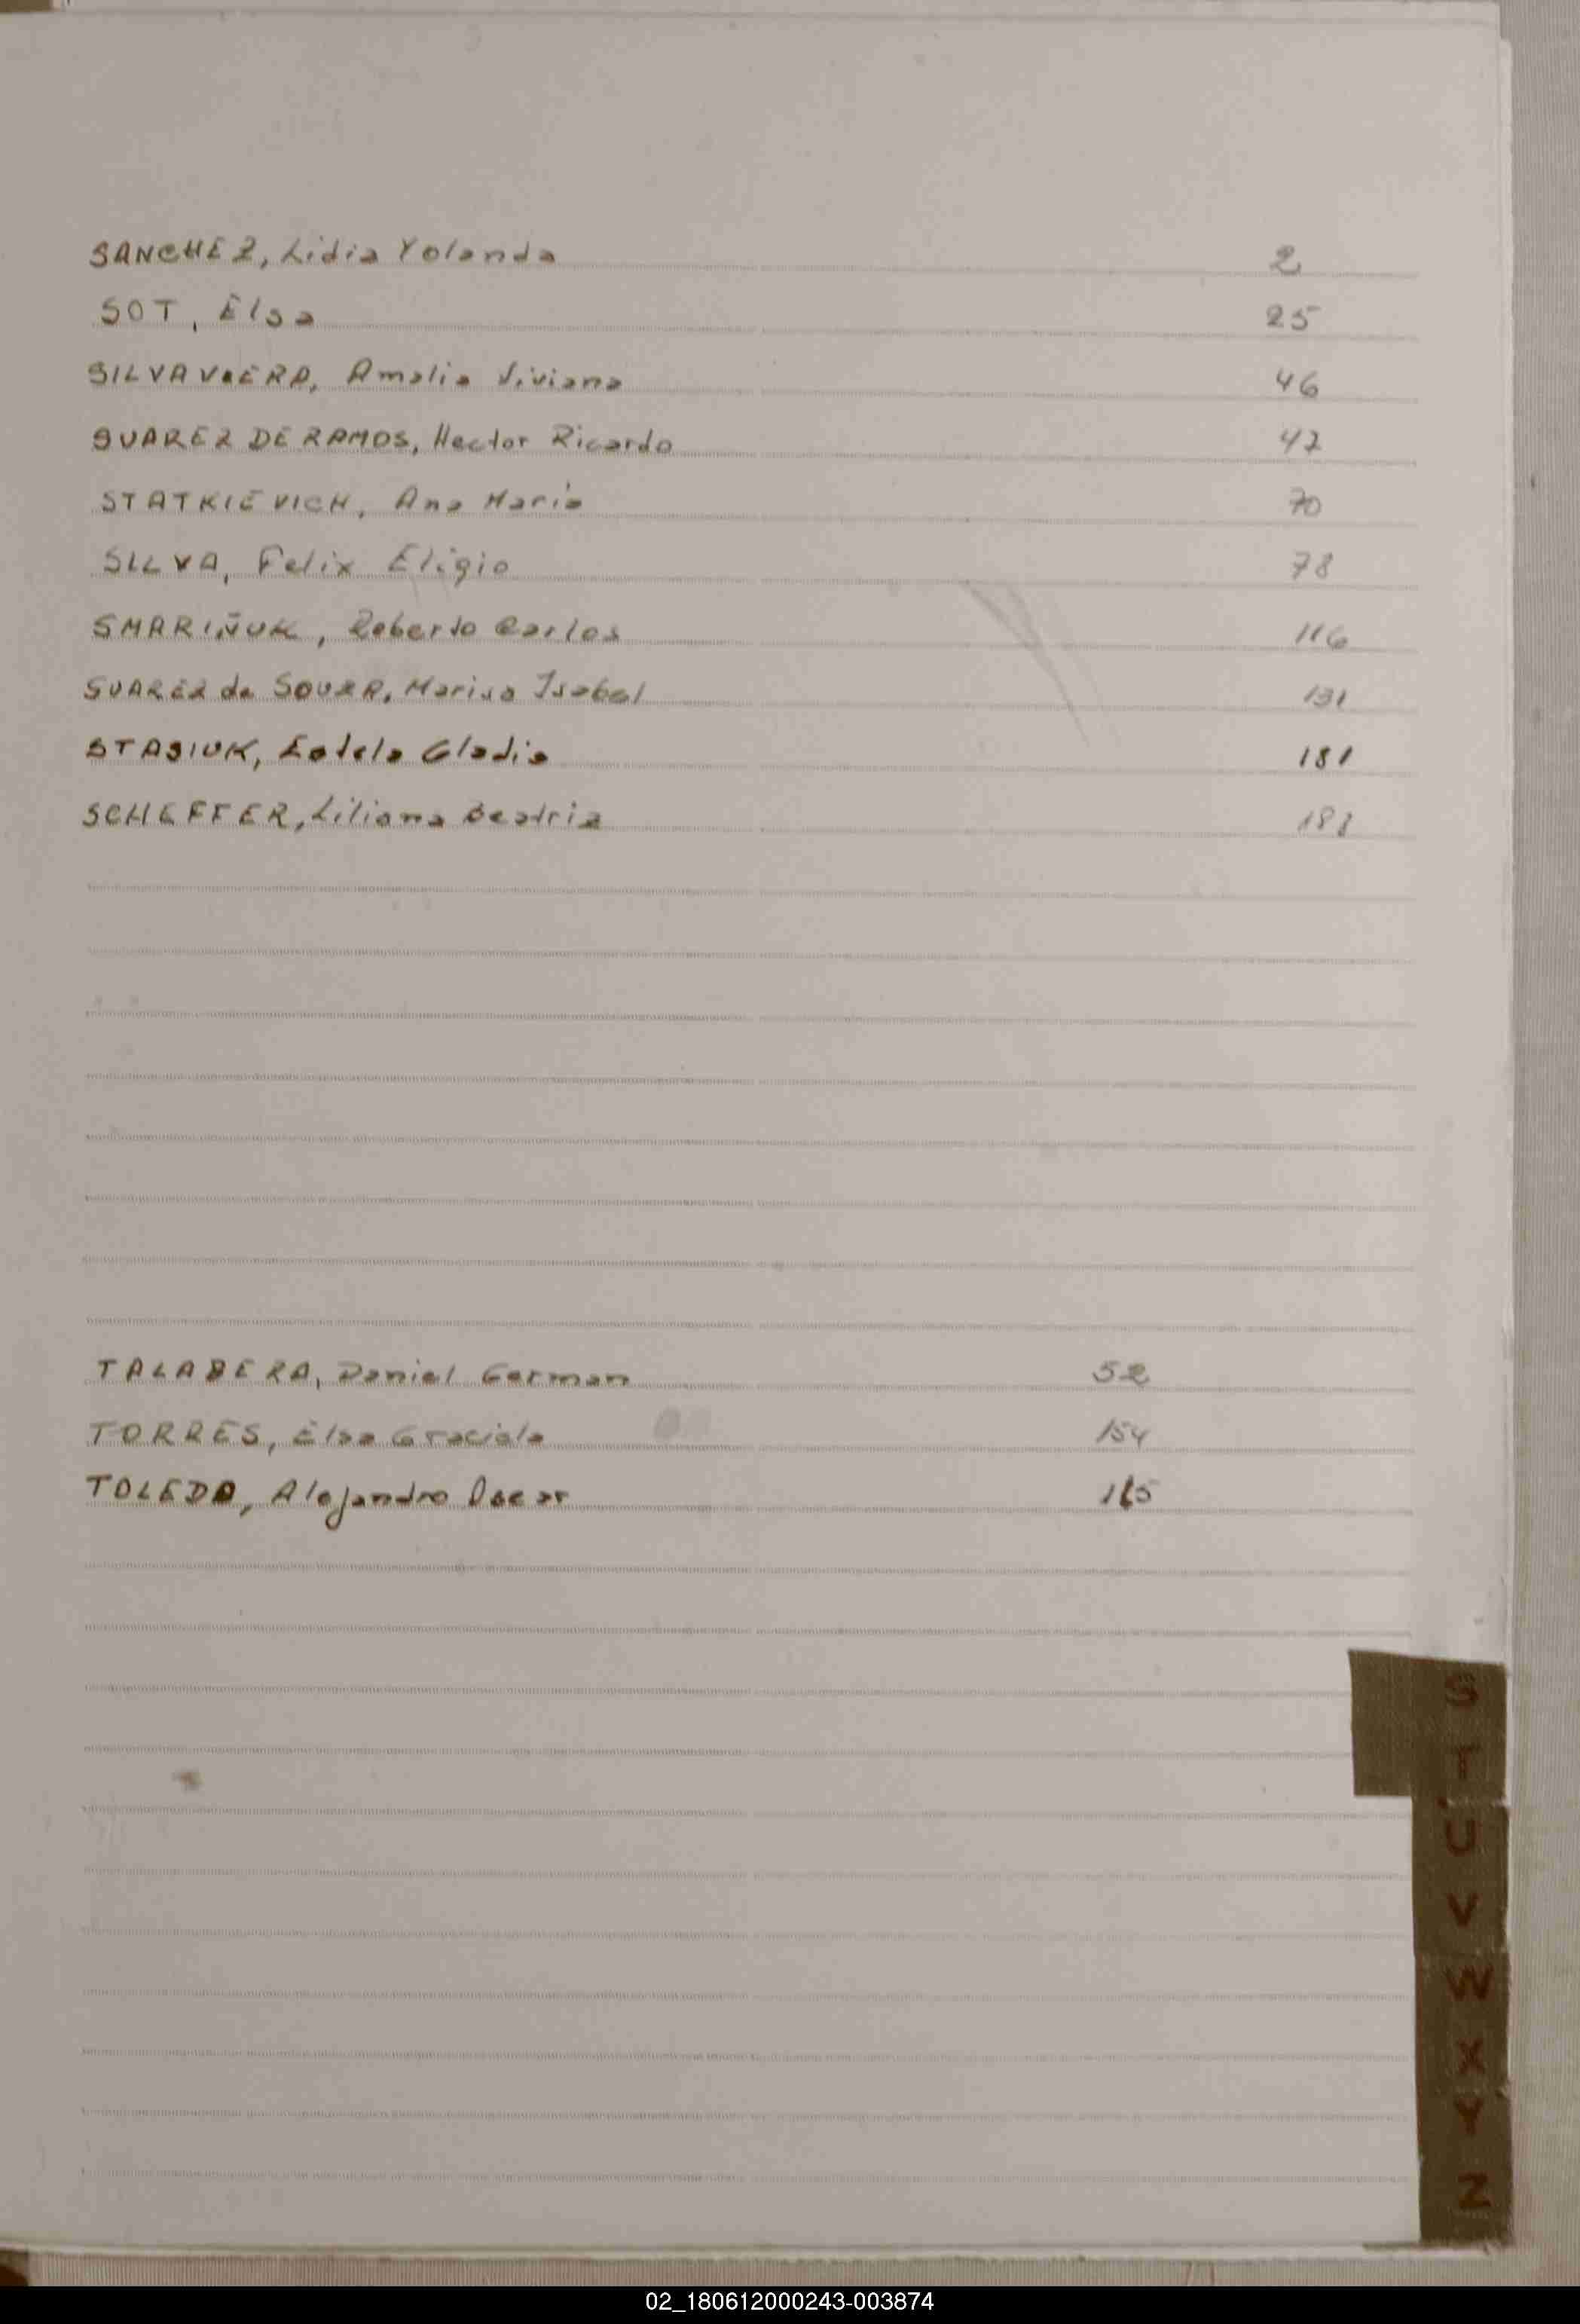 SANCHEZ, Lidia Yolanda 2
SOT, Elsa 25
SILVA VIERA, Amalia Viviana 46
SUAREZ DE RAMOS, Hector Ricardo 47
STATKIEVICH, Ana Maria 70
SILVA, Felix Eligio 78
SMARIÑUK, Roberto Carlos 116
SUAREZ de SOUZA, Marisa Isabel 131
STASIUK, Estela Gladis 181
SCHEFFER, Liliana Beatriz
TALABERA, Daniel German 52
TORRES, Elsa Graciela 154
TOLEDO, Alejandro Oscar 165
S
T
U
V
W
X
Y
Z
02_180612000243-003874